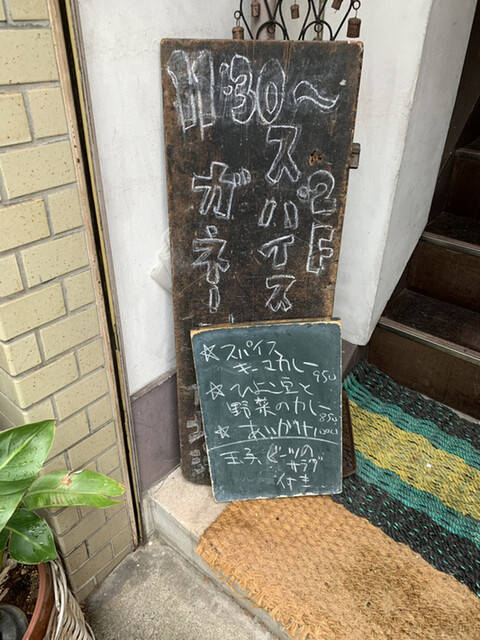 11:30～
2F
スパイス
ガネー
☆スパイス
キーマカレー 950
☆ひよこ豆と
野菜のカレー 850
☆あいがけ 1000
玉子、ビーツのサラダ付き